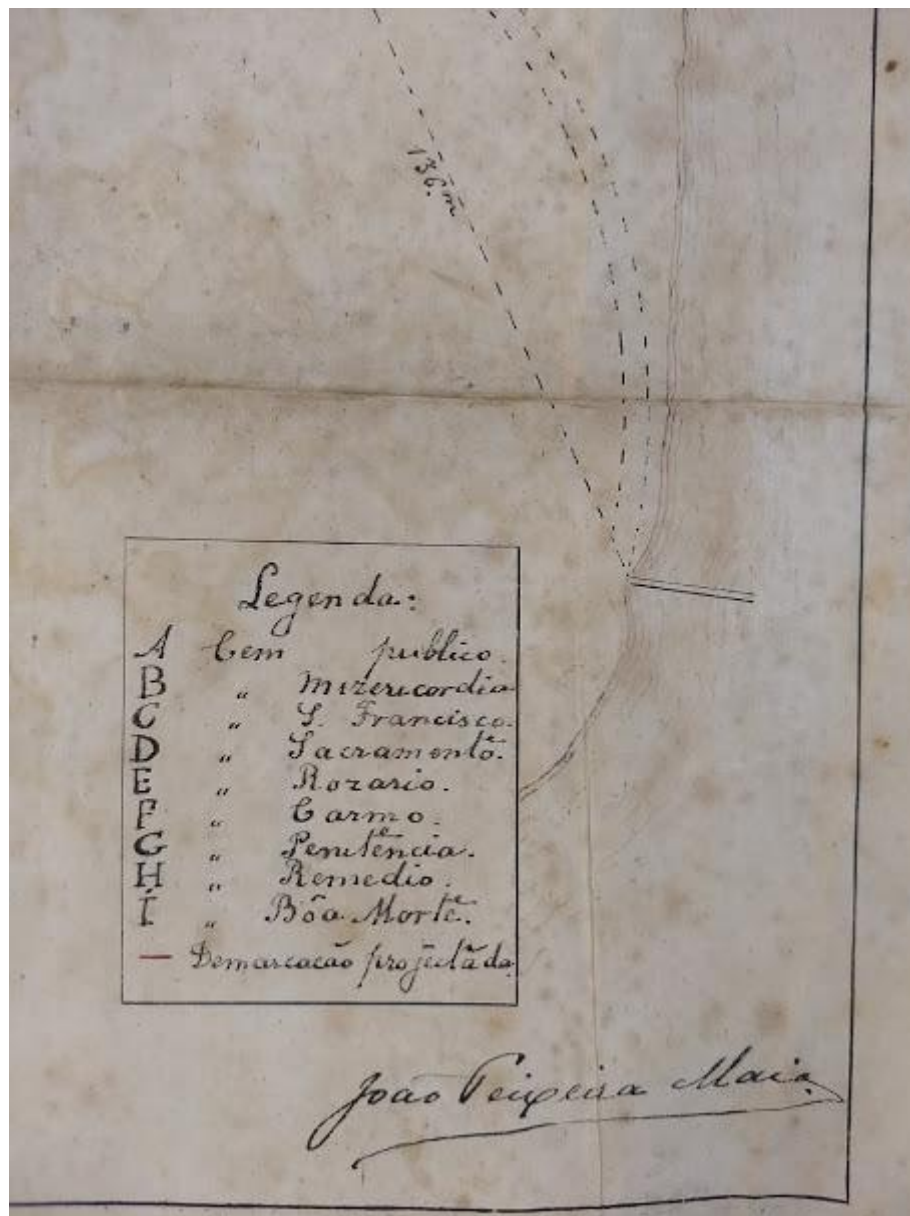 136.m
Legenda:
A Cem publico.
B " Mizericordia
C " S. Francisco.
D " Sacramento.
E " Rozario.
F " Carmo.
G " Penitencia.
H " Remedio.
I " Bôa Morte.
— Demarcacão projectada
João Teixeira Maia